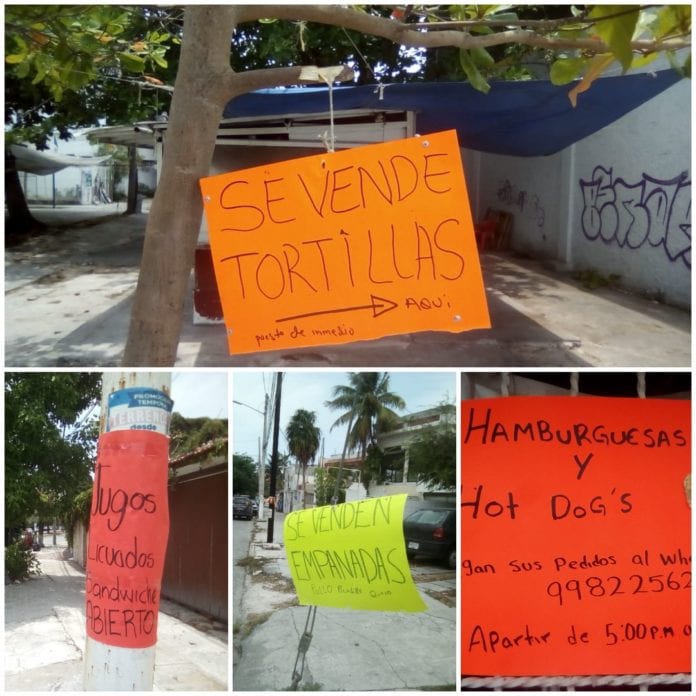 SE VENDE
TORTILLAS
AQUÍ
puesto de inmedio
PROMOCIÓN
TEMPORAL
TERRENOS
desde
Jugos
Licuados
Sandwiche
ABIERTO
SE VENDEN
EMPANADAS
POLLO Picadillo Queso
HAMBURGUESAS
Y
Hot DoG'S
gan sus Pedidos al Wha
99822562
Apartir de 5:00 P.M a